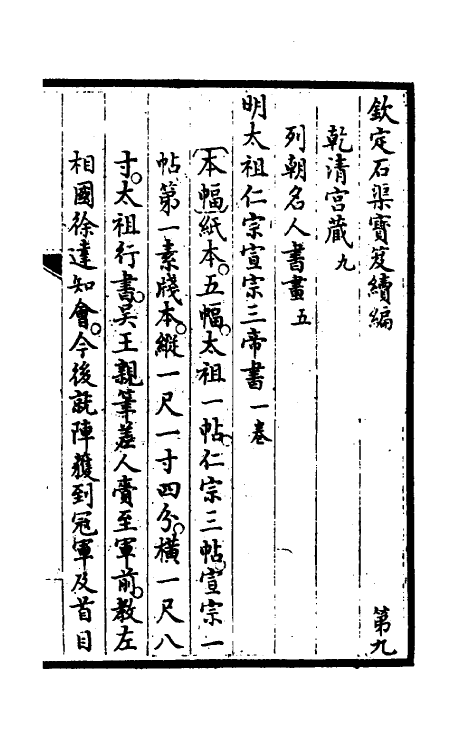 欽定石渠寶笈續編 第九
乾清宮藏九
列朝名人書畫五
明太祖仁宗宣宗三帝書一卷
(本幅)紙本。五幅。太祖一帖。仁宗三帖。宣宗一
帖。第一素牋本。縱一尺一寸四分。橫一尺八
寸。太祖行書。吳王親筆差人賫至軍前。教左
相國徐達知會。今後就陣獲到冦軍及首目